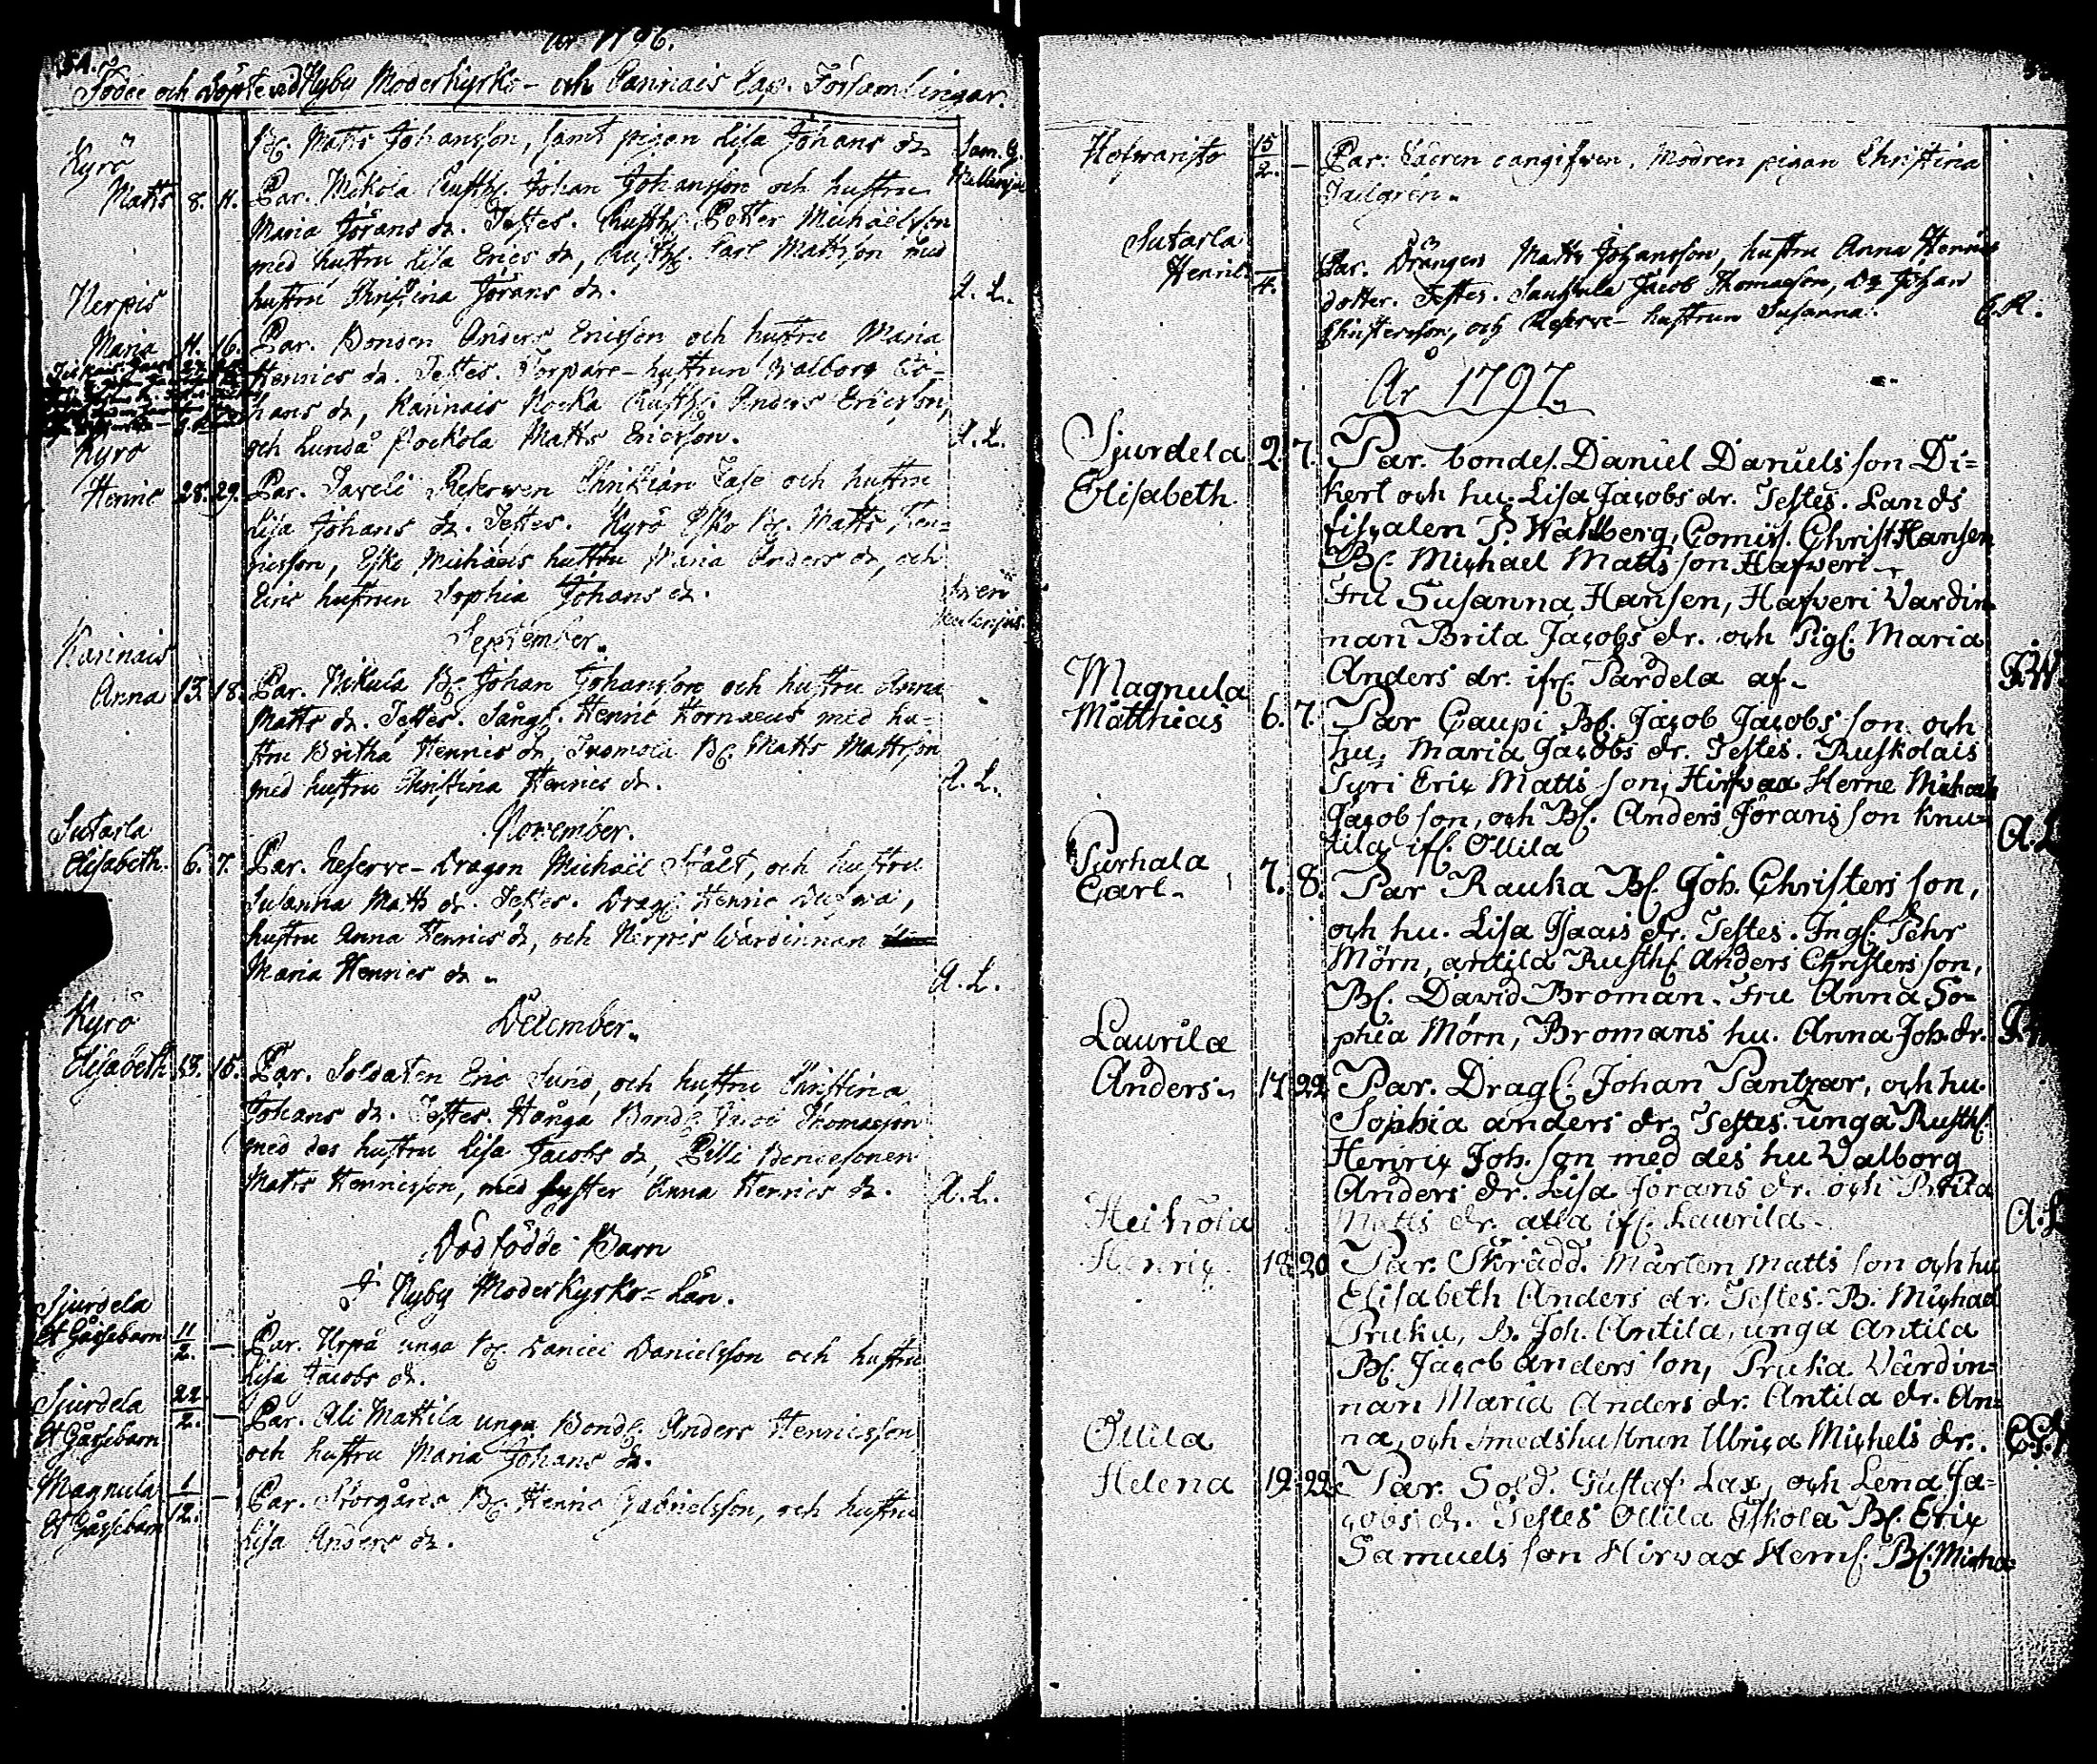 År 1796.
54.
Födde och Döpte vid Nyby Moderkyrko- och Carinais Cap. Församlingar.
Bf. Matts Johansson, samt pigan Lisa Johans dr. Sam. G.
Kyrö
Matts 8. 11. Par. Mikola Rusth. Johan Johansson och hustru Mellenius
Maria Jörans dr. Testes. Rusth. Petter Michaelsson
med hustru Lisa Erics dr, Rusth. Carl Mattsson med
hustru Christina Jörans dr. A. L.
Nerpis
Maria 11. 16. Par. Bonden Anders Ericsson och hustru Maria
Henrics dr. Testes. Torpare-hustrun Walborg Jo-
hans dr, Karinais Nocka Rusth. Anders Ericsson,
och Lundå Pockola Matts Ericsson. A. L.
Kyrö
Henric 28. 29. Par. Javeli Reserven Christian Fast och hustru
Lisa Johans dr. Testes. Kyrö Esko Bf. Matts Hen-
ricsson, Esko Michaels hustru Maria Anders dr, och
Eric hustrun Sophia Johans dr.
September.
Karinais
Anna 13. 18. Par. Nikula Bf. Johan Johansson och hustru Anna
Matts dr. Testes. Sångf. Henric Kornaeus med hu-
stru Britha Henrics dr, Isomola Bf. Matts Mattsson
med hustru Christina Henrics dr. A. L.
November.
Sutarla
Elisabeth. 6. 7. Par. Reserve-Dragon Michael Stålt, och hustru
Susanna Matts dr. Testes. Drag. Henric
hustru Anna Henrics dr, och Nerpis Wärdinnan
Maria Henrics dr. A. L.
December.
Kyrö
Elisabeth 13. 15. Par. Soldaten Eric Sund, och hustru Christina
Johans dr. Testes. Hånga Bond. Jacob Thomasson
med des hustru Lisa Jacobs dr, Pilli Bondesonen
Matts Henricsson, med syster Anna Henrics dr. A. L.
Dödfödde Barn
I Nyby Moderkyrko-Län.
Sjurdela
Et Gåssebarn 11/2. — Par. Urpå unga Bf. Daniel Danielsson och hustru
Lisa Jacobs dr.
Sjurdela 22/2. — Par. Ali Mattila unga Bond. Anders Henricsson
Et Gåssebarn och hustru Maria Johans dr.
Magnula 1/12. — Par. Storgårds Bf. Henric Gabrielsson, och hustru
Et Gåssebarn Lisa Anders dr.
Hofwaristo 15/2. — Par. Fadren oangifwen. Modren pigan Christina
Tallgren.
Sutarla
Henric —/4. Par. Drängen Matts Johansson, hustru Anna Henrics
dotter. Testes. Sauskula Jacob Thomasson, Johan
Christersson, och Reserve-hustrun Susanna.
År 1797.
Sjurdela 2. 7. Par. bondes. Daniel Daniels son Di-
Elisabeth kert och hu. Lisa Jacobs dr. Testes. Lands
fiscalen P. Wahlberg, Comiss. Christ. Hansen
Bf. Michael Matts son Hafveri
Fru Susanna Hansen, Hafveri Vardin-
nan Brita Jacobs dr. och Pigs. Maria
Anders dr. ifr. Pardela af.
Magnula
Matthias 6. 7. Par Caupi Bf. Jacob Jacobs son och
hu. Maria Jacobs dr. Testes. Ruskolais
Syri Eric Matts son, Hirvax Herne Michael
Jacob son, och Bf. Anders Jörans son Knu-
tila, if. Ollila A. L
Purhala
Carl. 7. 8. Par Rauka Bf. Joh. Christers son,
och hu. Lisa Isacs dr. Testes. Ings. Pehr
Mörn, antila Rusth. Anders Christers son,
Bf. David Broman. Fru Anna So-
phia Mörn, Bromans hu. Anna Joh. dr.
Laurila
Anders. 17. 22. Par. Drag. Johan Pantzar, och hu.
Sophia anders dr, Testes. unga Rusth.
Henric Joh. son med des hu Valborg
Anders dr. Lisa Jörans dr. och Brita
Matts dr. alla if. Laurila. A. L
Heikola
Henric. 18. 20. Par. Skrädd. Mårten Matts son och hu
Elisabeth Anders dr. Testes. B. Michael
Pruka, B. Joh. Antila, unga Antila
Bf. Jacob anders son, Pruka Värdin-
nan Maria Anders dr. Antila dr. An-
na, och smedshustrun Ulrica Michels dr.
Ollila
Helena 19. 22. Par. Sold. Gustaf Lax, och Lena Ja-
cobs dr. Testes Ollila Eskola Bf. Eric
Samuels son Hirvax Hernf. Bf. Micha-